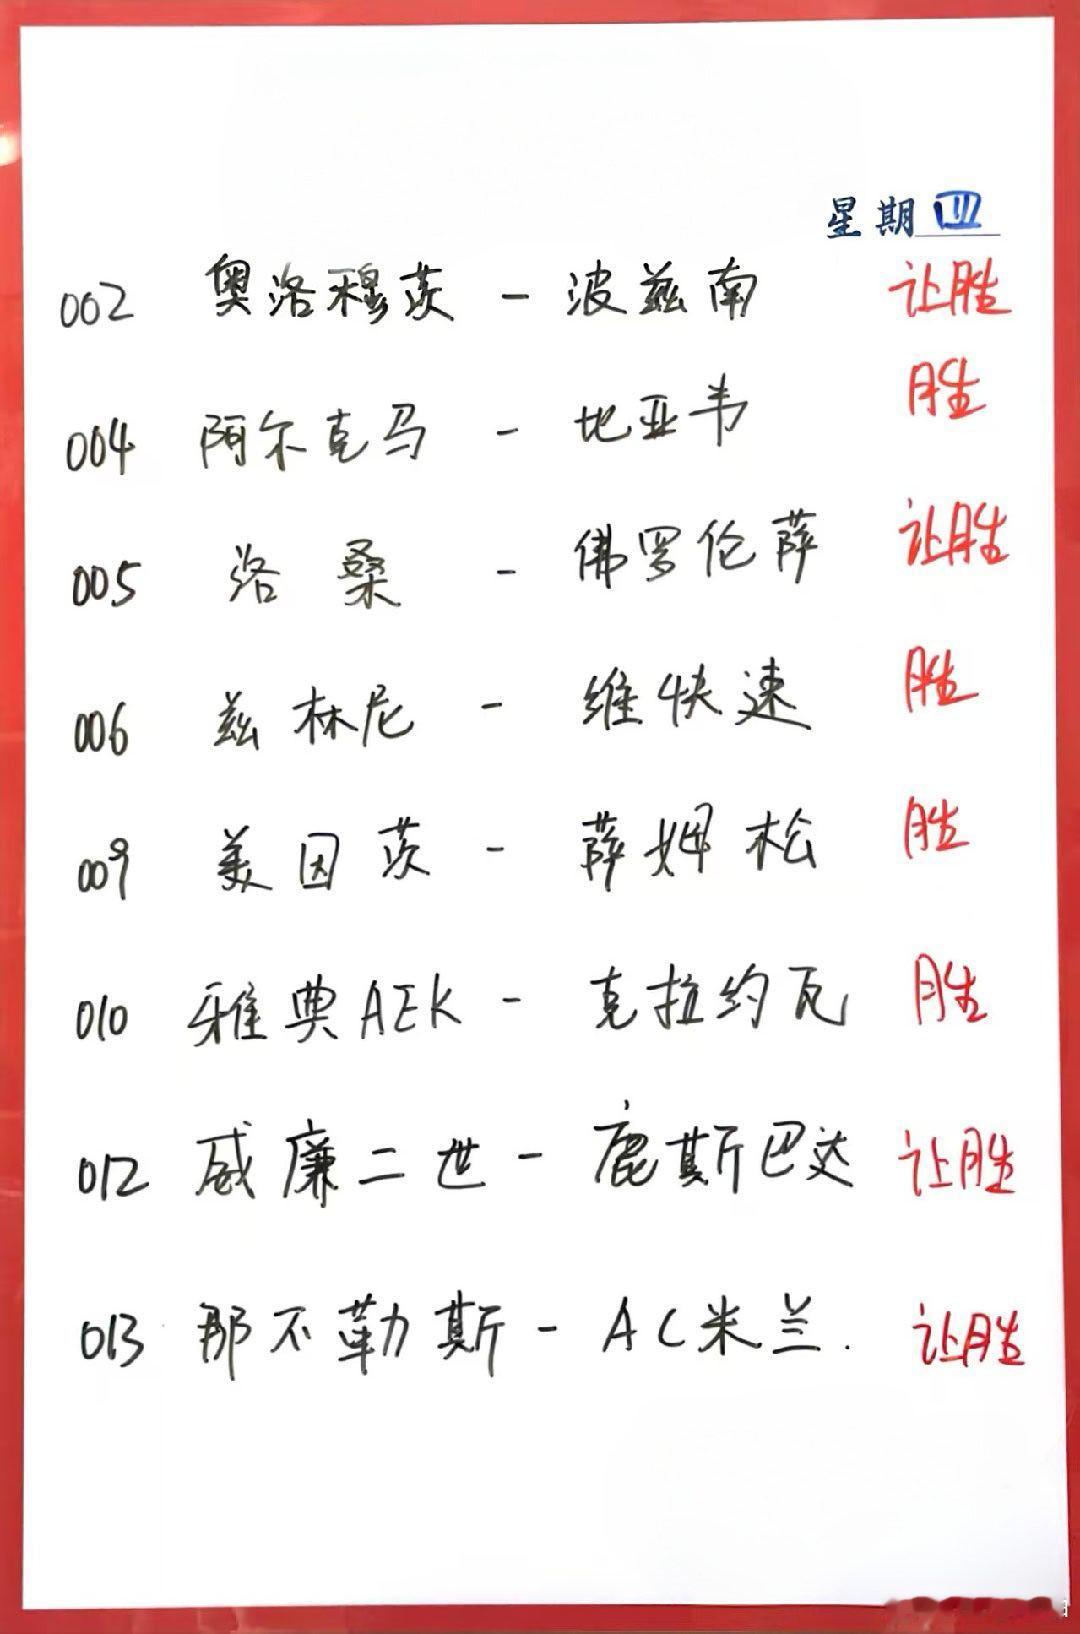 星期四
002 奥洛穆茨 - 波兹南 让胜
004 阿尔克马 - 地亚韦 胜
005 洛桑 - 佛罗伦萨 让胜
006 兹林尼 - 维快速 胜
009 美因茨 - 萨姆松 胜
010 雅典AEK - 克拉约瓦 胜
012 威廉二世 - 鹿斯巴达 让胜
013 那不勒斯 - AC米兰. 让胜